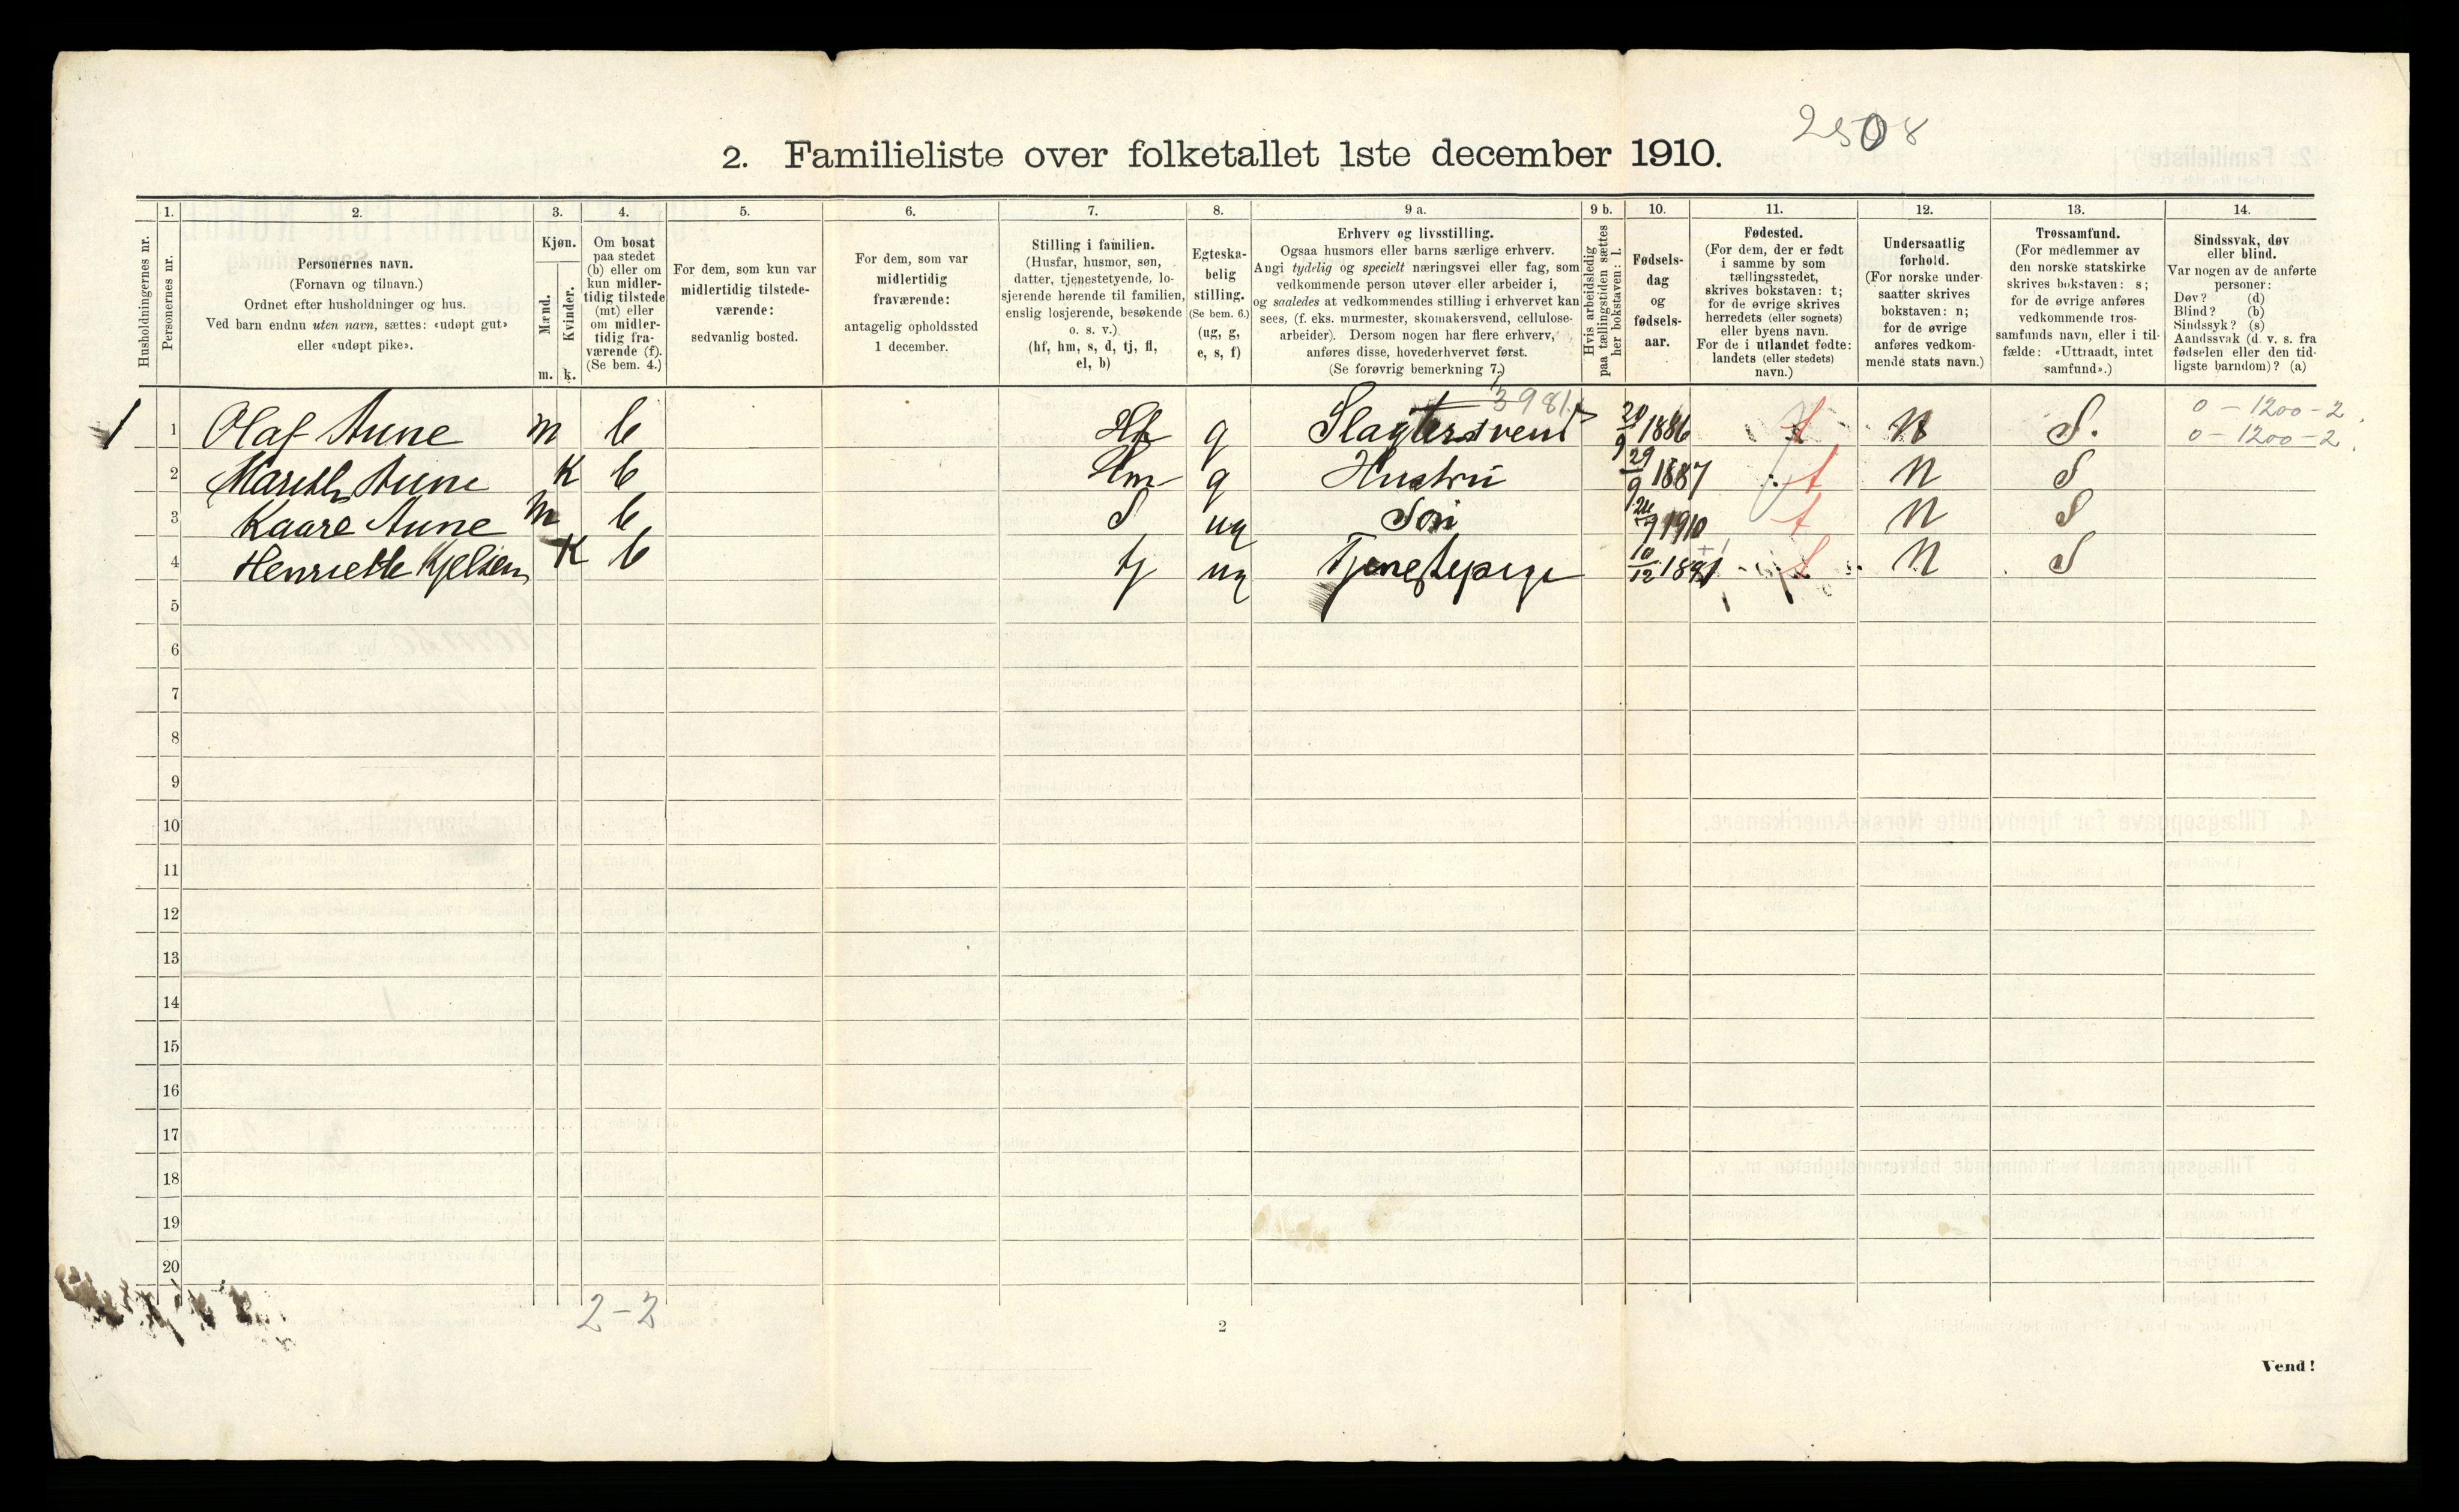 2508
2. Familieliste over folketallet 1ste december 1910.
Husholdningernes nr.
1.
Personernes nr.
2.
Personernes navn.
(Fornavn og tilnavn.)
Ordnet efter husholdninger og hus.
Ved barn endnu uten navn, sættes: «udøpt gut»
eller «udøpt pike».
3.
Kjøn.
Mænd.
Kvinder.
m. k.
4.
Om bosat
paa stedet
(b) eller om
kun midler-
tidig tilstede
(mt) eller
om midler-
tidig fra-
værende (f).
(Se bem. 4.)
5.
For dem, som kun var
midlertidig tilstede-
værende:
sedvanlig bosted.
6.
For dem, som var
midlertidig
fraværende:
antagelig opholdssted
1 december.
7.
Stilling i familien.
(Husfar, husmor, søn,
datter, tjenestetyende, lo-
sjerende hørende til familien,
enslig losjerende, besøkende
o. s. v.)
(hf, hm, s, d, tj, fl,
el, b)
8.
Egteska-
belig
stilling.
(Se bem. 6.)
(ug, g,
e, s, f)
9 a.
Erhverv og livsstilling.
Ogsaa husmors eller barns særlige erhverv.
Angi tydelig og specielt næringsvei eller fag, som
vedkommende person utøver eller arbeider i,
og saaledes at vedkommendes stilling i erhvervet kan
sees, (f. eks. murmester, skomakersvend, cellulose-
arbeider). Dersom nogen har flere erhverv,
anføres disse, hovederhvervet først.
(Se forøvrig bemerkning 7.)
9 b.
Hvis arbeidsledig
paa tællingstiden sættes
her bokstaven: l.
10.
Fødsels-
dag
og
fødsels-
aar.
11.
Fødested.
(For dem, der er født
i samme by som
tællingsstedet,
skrives bokstaven: t;
for de øvrige skrives
herredets (eller sognets)
eller byens navn.
For de i utlandet fødte:
landets (eller stedets)
navn.)
12.
Undersaatlig
forhold.
(For norske under-
saatter skrives
bokstaven: n;
for de øvrige
anføres vedkom-
mende stats navn.)
13.
Trossamfund.
(For medlemmer av
den norske statskirke
skrives bokstaven: s;
for de øvrige anføres
vedkommende tros-
samfunds navn, eller i til-
fælde: «Uttraadt, intet
samfund».)
14.
Sindssvak, døv
eller blind.
Var nogen av de anførte
personer:
Døv? (d)
Blind? (b)
Sindssyk? (s)
Aandssvak (d. v. s. fra
fødselen eller den tid-
ligste barndom)? (a)
3981 0 – 1200 – 2
1 1 Olaf Aune m b Hf g Slagtersvend 20/9 1886 t N S. 0 – 1200 – 2
2 Mareth Aune K b Hm g Hustru 29/9 1887 t N S
3 Kaare Aune m b S ug Søn 24/9 1910 t N S
4 Henriette Kjelsen K b tj ug Tjenestepige 10/12 1891 t N S
5
6
7
8
9
10
11
12
13
14
15
16
17
18
19
20
2–2
2
Vend!